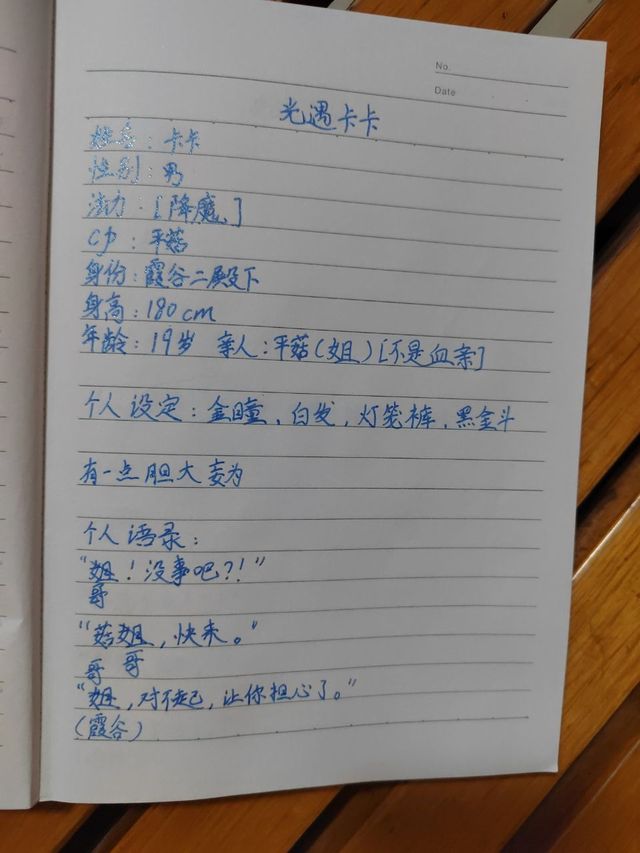 No.
Date
光遇卡卡
姓名：卡卡
性别：男
法力：[降魔]
cp：平菇
身份：霞谷二殿下
身高：180cm
年龄：19岁 亲人：平菇(姐)[不是血亲]
个人设定：金瞳，白发，灯笼裤，黑金斗
有一点胆大妄为
个人语录：
“姐！没事吧？！”
哥
“菇姐，快来。”
哥 哥
“姐，对不起，让你担心了。”
(霞谷)